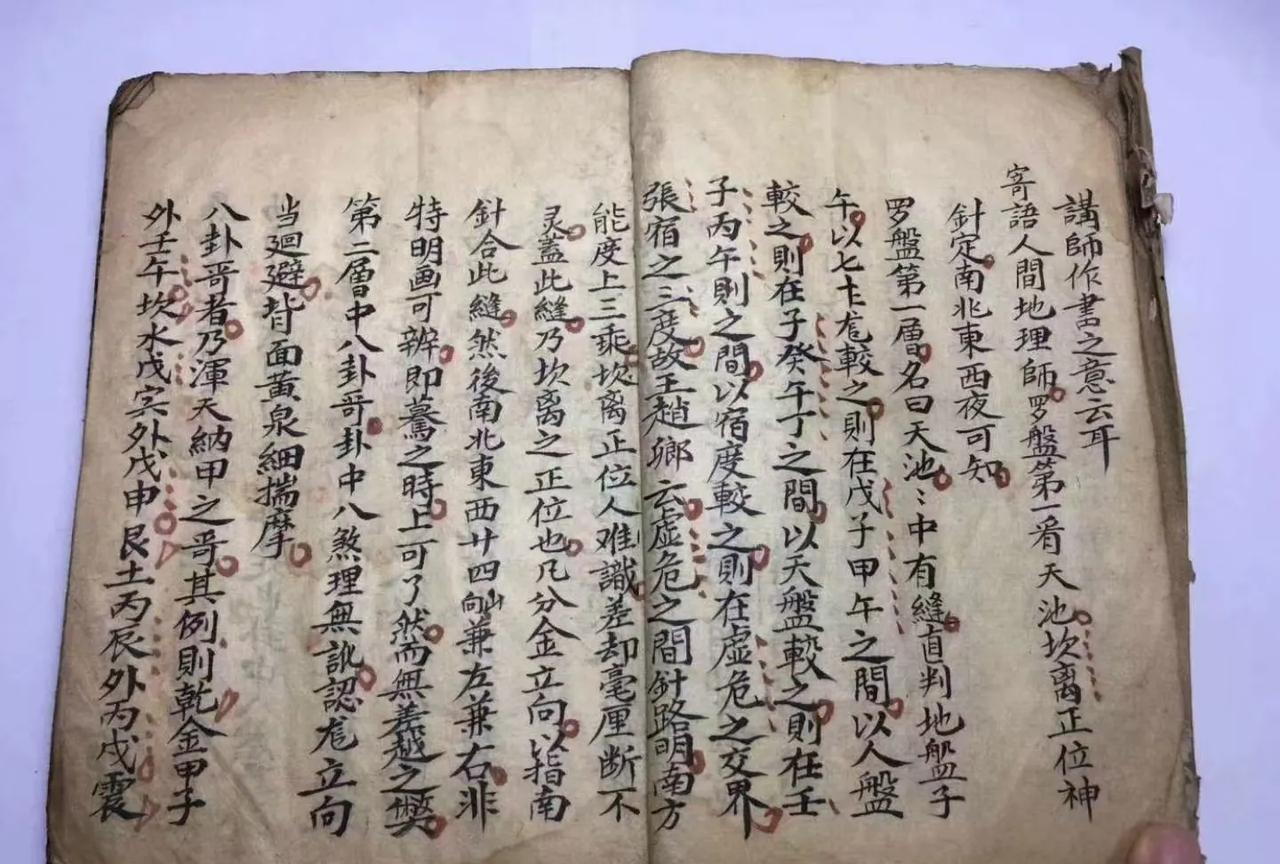 講師作書之意云耳
寄語人間地理師罗盤第一看天池坎离正位神
針定南北東西夜可知
罗盤第一層名曰天池〻中有縫直判地盤子
午以七十龙較之則在戊子甲午之間以人盤
較之則在子癸午丁之間以天盤較之則在壬
子丙午則之間以宿度較之則在虚危之交界
張宿之三度故王趙鄉云虚危之間針路明南方
能度上三乘坎离正位人难識差却毫厘断不
灵蓋此縫乃坎离之正位也凡分金立向以指南
針合此縫然後南北東西廿四山向兼左兼右非
特明画可辨即驀之時上可了然而無差越之弊
第二層中八卦哥卦中八煞理無訛認龙立向
当廻避背面黄泉細揣摩
八卦哥者乃渾天納甲之哥其例則乾金甲子
外壬午坎水戊寅外戊申艮土丙辰外丙戌震